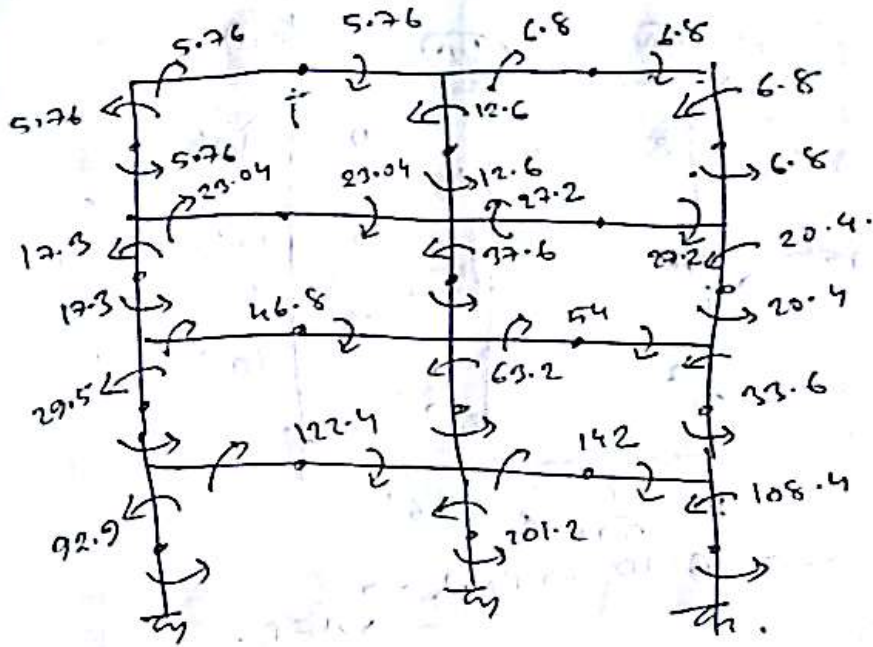 5.76 5.76 6.8 6.8
5.76 12.6 6.8
5.76 12.6 6.8
23.04 23.04 27.2
17.3 37.6 27.2 20.4.
17.3 46.8 54 20.4
29.5 63.2 33.6
122.4 142
92.9 201.2 108.4